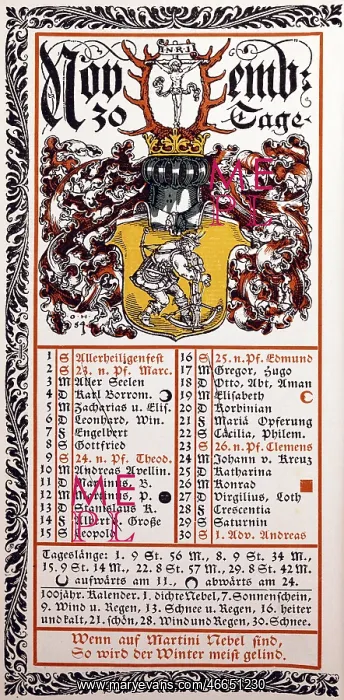 I·N·R·I
Novemb:
30 Tage
ME
PL
O·H
84
1 S Allerheiligenfest
2 S 23. n. Pf. Marc.
3 M Aller Seelen
4 D Karl Borrom.
5 M Zacharias u. Elis.
6 D Leonhard, Win.
7 F Engelbert
8 S Gottfried
9 S 24. n. Pf. Theod.
10 M Andreas Avellin.
11 D B.
12 M P.
13 D Stanislaus K.
14 F Albert d. Große
15 S Leopold
ME
PL
16 S 25. n. Pf. Edmund
17 M Gregor, Hugo
18 D Otto, Abt, Aman
19 M Elisabeth
20 D Korbinian
21 F Mariä Opferung
22 S Cäcilia, Philem.
23 S 26. n. Pf. Clemens
24 M Johann v. Kreuz
25 D Katharina
26 M Konrad
27 D Virgilius, Loth
28 F Crescentia
29 S Saturnin
30 S 1. Adv. Andreas
Tageslänge: 1. 9 St. 56 M., 8. 9 St. 34 M.,
15. 9 St. 14 M., 22. 8 St. 57 M., 29. 8 St. 42 M.
aufwärts am 11., abwärts am 24.
100jähr. Kalender. 1. dichte Nebel, 7. Sonnenschein,
9. Wind u. Regen, 13. Schnee u. Regen, 16. heiter
und kalt, 21. schön, 28. Wind und Regen, 30. Schnee.
Wenn auf Martini Nebel sind,
So wird der Winter meist gelind.
www.maryevans.com/46651230